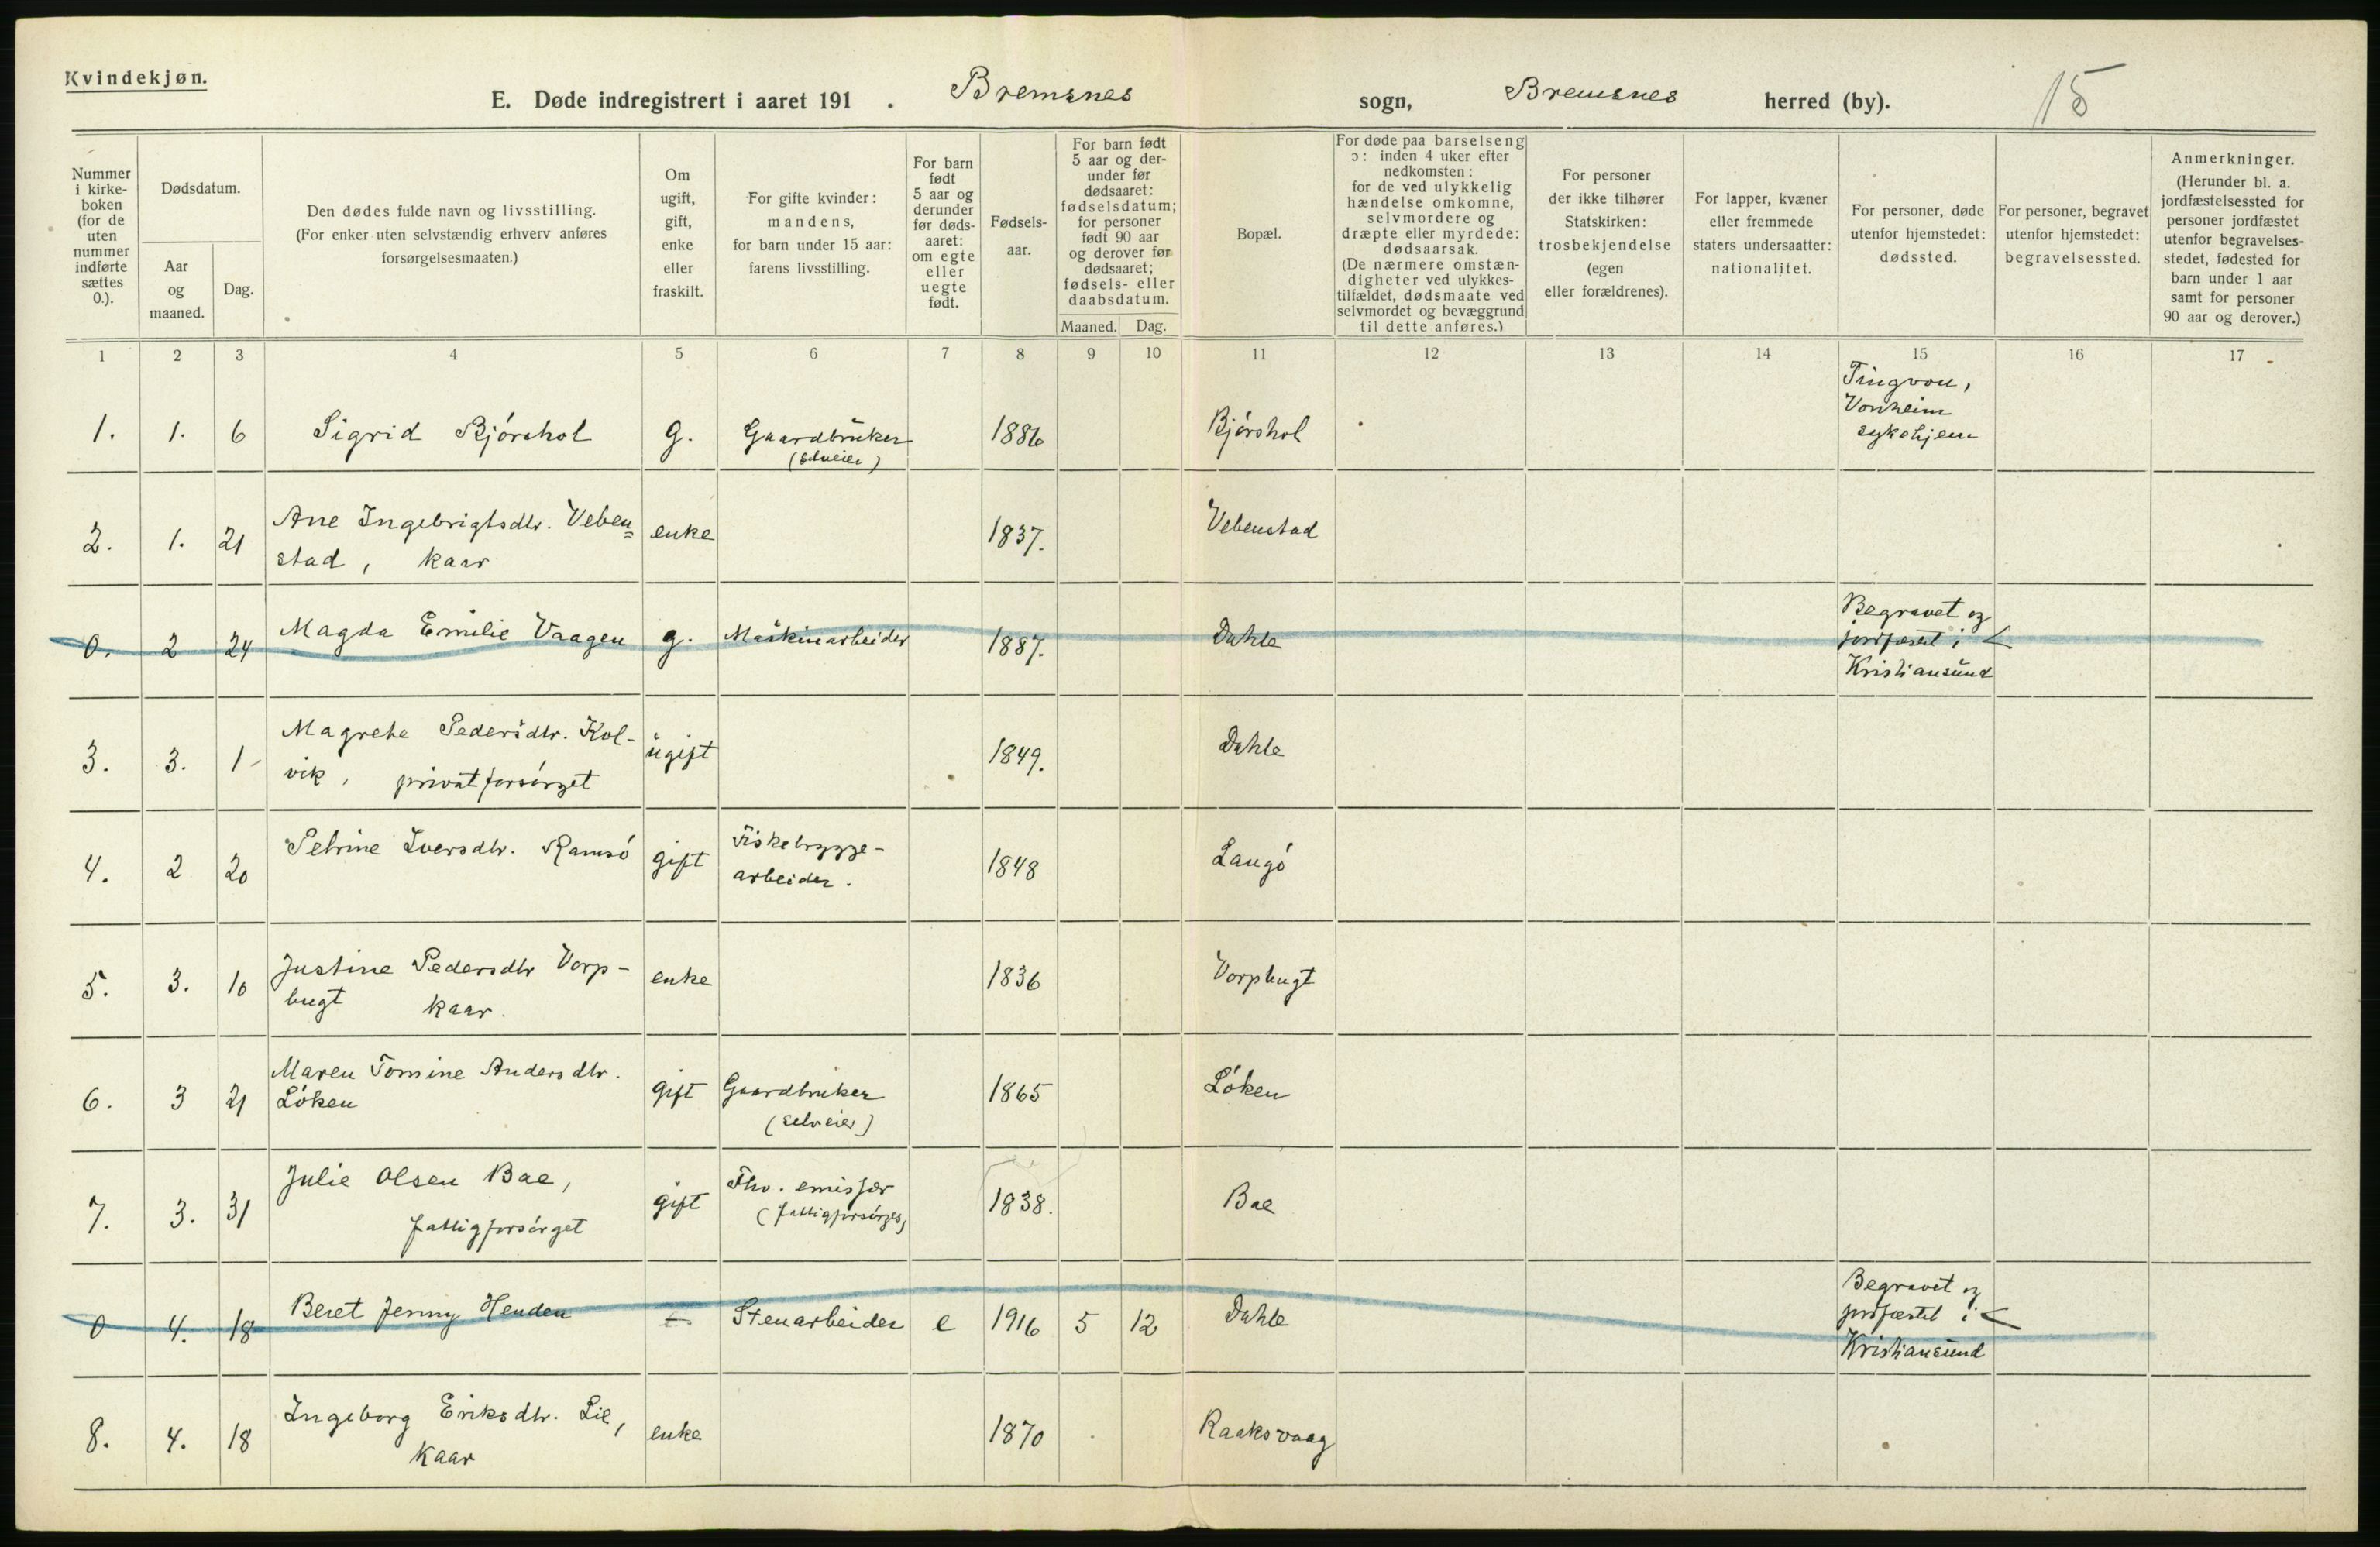 Kvindekjøn.
E. Døde indregistrert i aaret 191 . Bremsnes sogn, Bremsnes herred (by). 15
Nummer i kirke- boken (for de uten nummer indførte sættes 0.).
Dødsdatum.
Aar og maaned.
Dag.
Den dødes fulde navn og livsstilling.
(For enker uten selvstændig erhverv anføres forsørgelsesmaaten.)
Om ugift, gift, enke eller fraskilt.
For gifte kvinder: mandens, for barn under 15 aar: farens livsstilling.
For barn født 5 aar og derunder før døds- aaret: om egte eller uegte født.
Fødsels- aar.
For barn født 5 aar og der- under før dødsaaret: fødselsdatum; for personer født 90 aar og derover før dødsaaret; fødsels- eller daabsdatum.
Maaned. Dag.
Bopæl.
For døde paa barselseng ɔ: inden 4 uker efter nedkomsten: for de ved ulykkelig hændelse omkomne, selvmordere og dræpte eller myrdede: dødsaarsak.
(De nærmere omstæn- digheter ved ulykkes- tilfældet, dødsmaate ved selvmordet og bevæggrund til dette anføres.)
For personer der ikke tilhører Statskirken: trosbekjendelse (egen eller forældrenes).
For lapper, kvæner eller fremmede staters undersaatter: nationalitet.
For personer, døde utenfor hjemstedet: dødssted.
For personer, begravet utenfor hjemstedet: begravelsessted.
Anmerkninger.
(Herunder bl. a. jordfæstelsessted for personer jordfæstet utenfor begravelses- stedet, fødested for barn under 1 aar samt for personer 90 aar og derover.)
1 2 3 4 5 6 7 8 9 10 11 12 13 14 15 16 17
1. 1. 6 Sigrid Bjórshol g. Gaardbrüker (selveier) 1886 Bjórshol Tingvou, Vonheim sykehjem
2. 1. 21 Ane Ingebrigtsdtr. Veben= stad, kaar enke 1837. Vebenstad
0. 2 24 Magda Emilie Vaagen g. Maskinarbeider 1887. Dahle Begravet og jordfæstet i Kristiansünd
3. 3. 1 Magrehe Pedersdtr. Kol- vik, privatforsórget ügift 1849. Dahle
4. 2 20 Petrine Iversdtr. Ramsó gift Fiskebrygge- arbeider. 1848 Langó
5. 3. 10 Justine Pedersdtr Vorp- bugt kaar. enke 1836 Vorpbugt
6. 3 21 Maren Tomine Andersdtr. Lóken gift Gaardbruker (selveier) 1865 Lóken
7. 3. 31 Julie Olsen Bae, fattigforsórget gift Fhv. emisjær (fattigforsórges) 1838. Bae
0 4. 18 Beret Jenny Henden - Stenarbeider e 1916 5 12 Dahle Begravet og jordfæstet i Kristiansünd
8. 4. 18 Ingeborg Eriksdtr. Lie, Kaar enke 1870 Raaksvaag